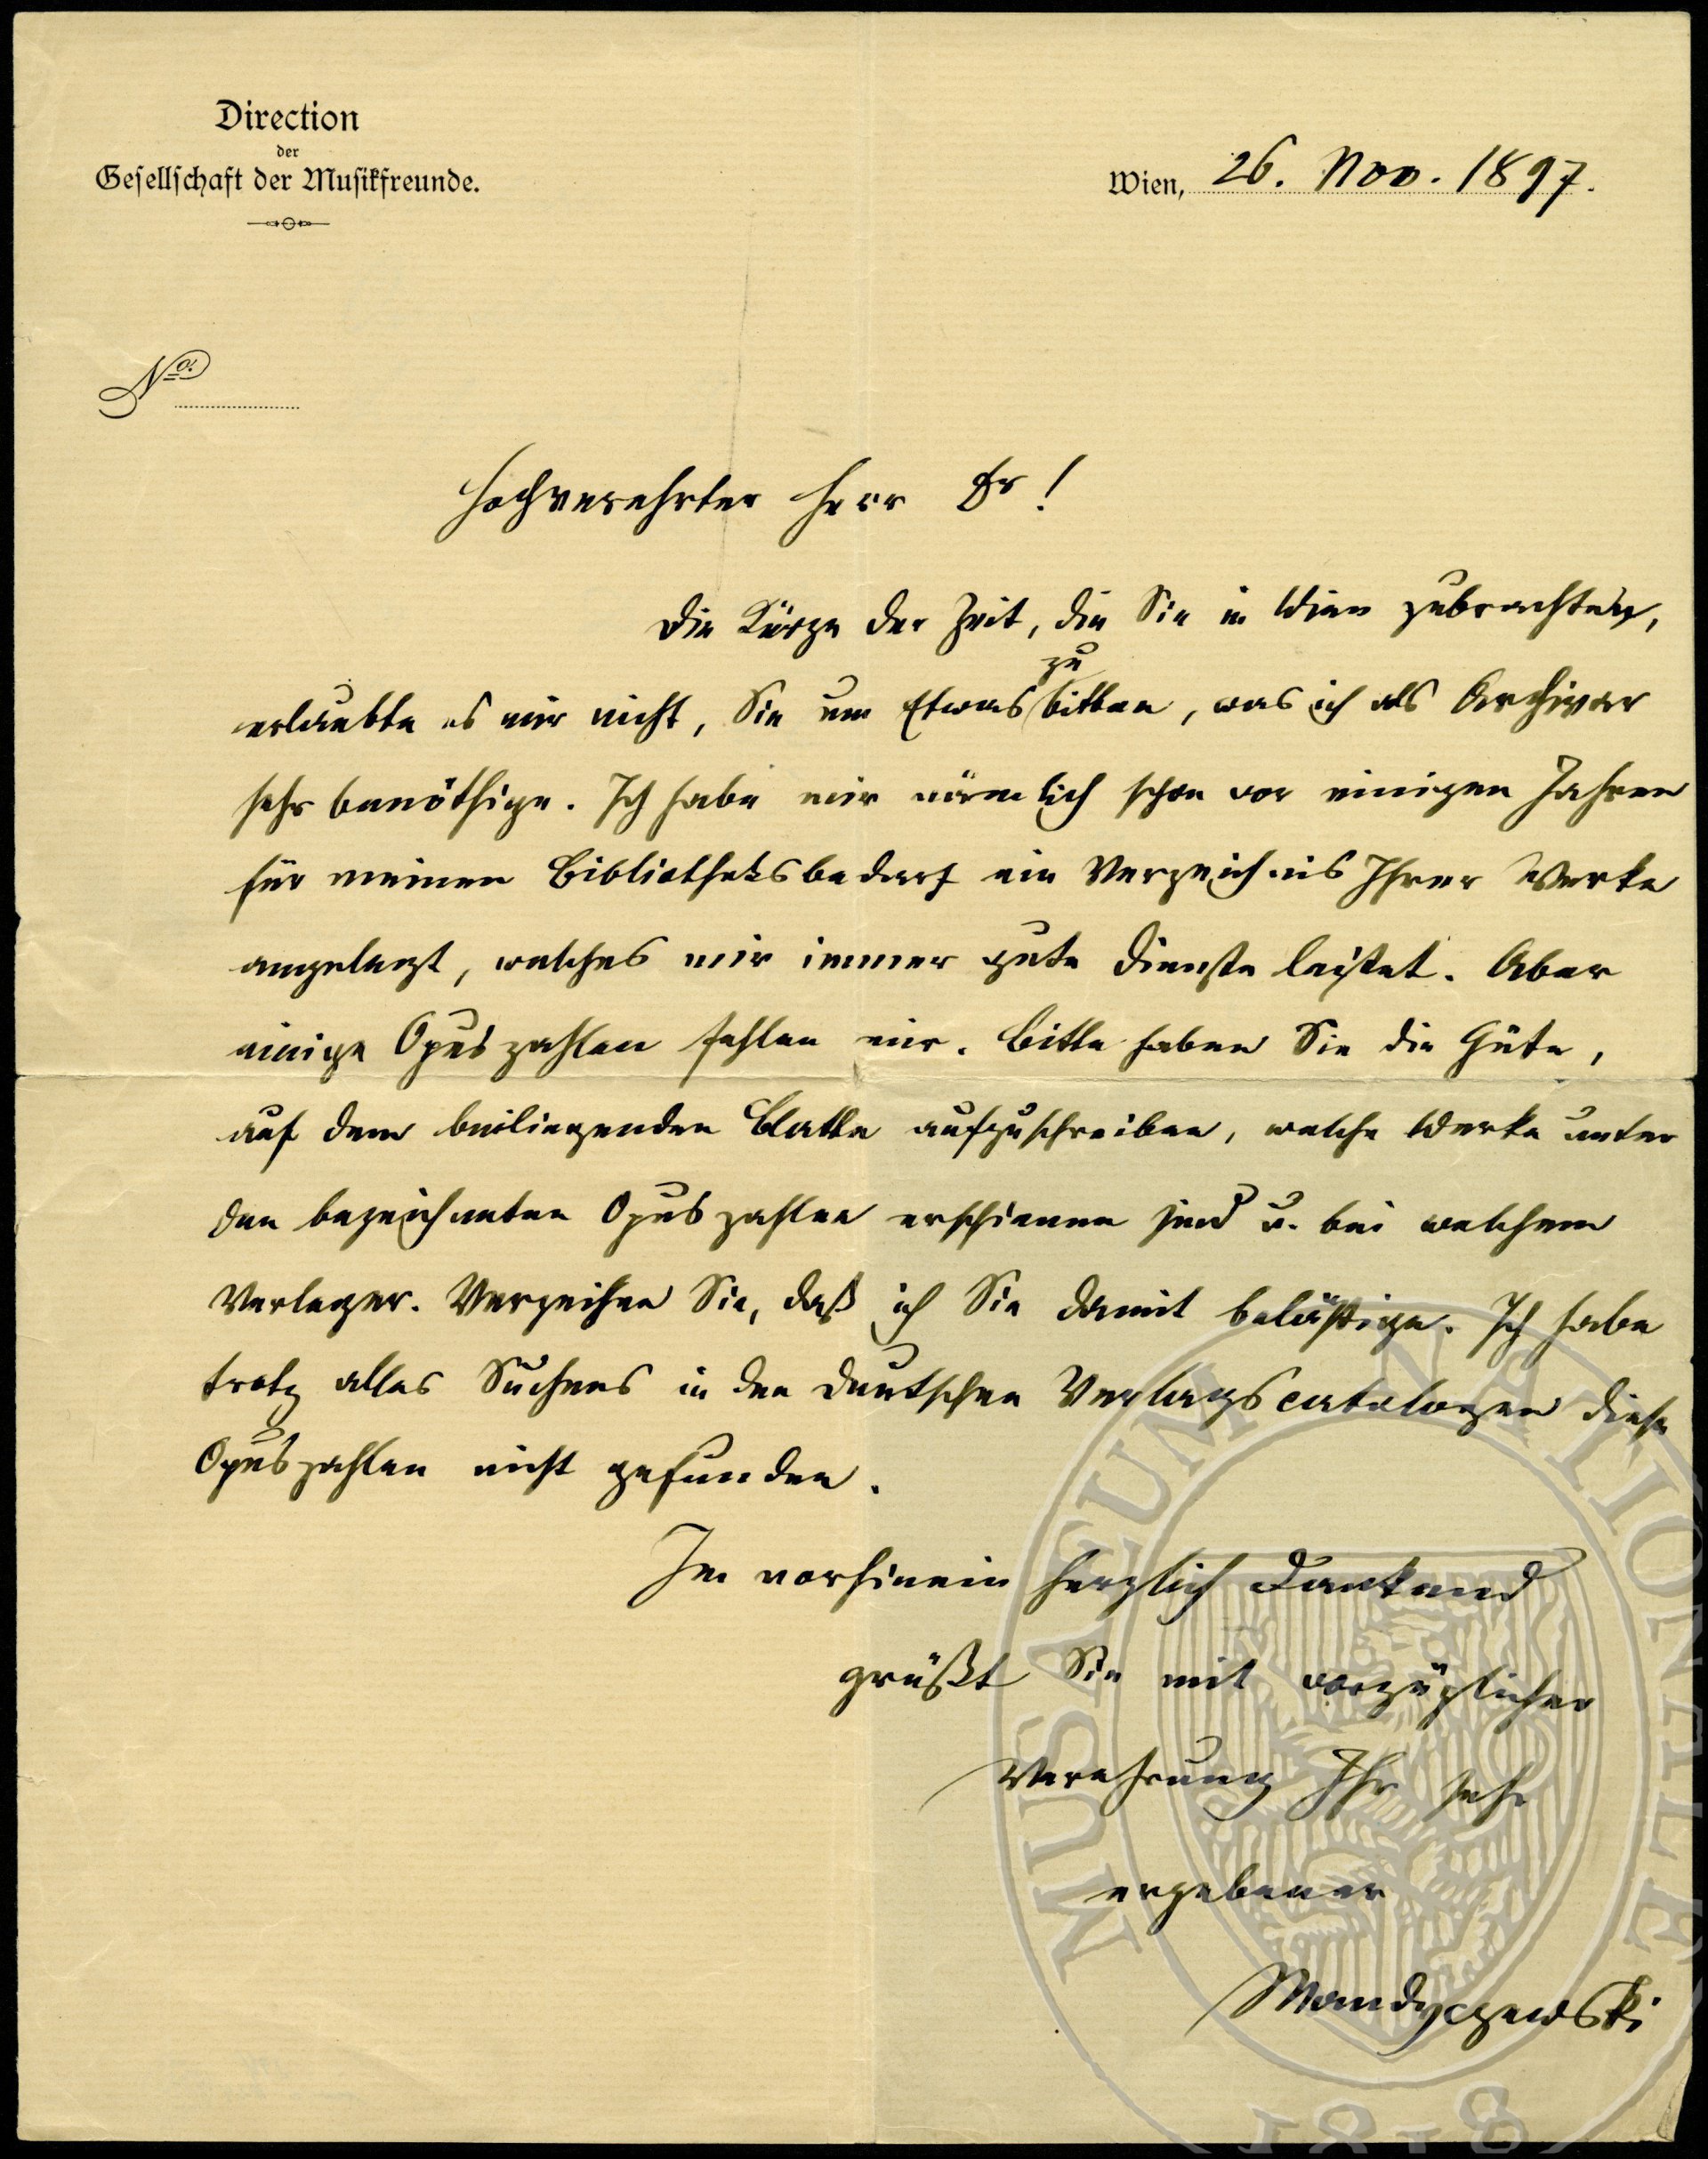 Direction
der
Gesellschaft der Musikfreunde.
Wien, 26. Nov. 1897.
No.
Hochverehrter Herr Dr!
Die Kürze der Zeit, die Sie in Wien zubrachten,
zu
erlaubte es mir nicht, Sie um Etwas bitten, was ich als Archivar
sehr benöthige. Ich habe mir nämlich schon vor einigen Jahren
für meinen Bibliotheksbedarf ein Verzeichnis Ihrer Werke
angelegt, welches mir immer gute Dienste leistet. Aber
einige Opuszahlen fehlen mir. Bitte haben Sie die Güte,
auf dem beiliegenden Blatte aufzuschreiben, welche Werke unter
den bezeichneten Opuszahlen erschienen sind u. bei welchem
Verleger. Verzeihen Sie, daß ich Sie damit belästige. Ich habe
trotz alles Suchens in den deutschen Verlagscatalogen diese
Opuszahlen nicht gefunden.
Im vorhinein herzlich dankend
grüßt Sie mit vorzüglicher
Verehrung Ihr sehr
ergebener
Mandyczewski
MUSAEUM NATIONALE
1818